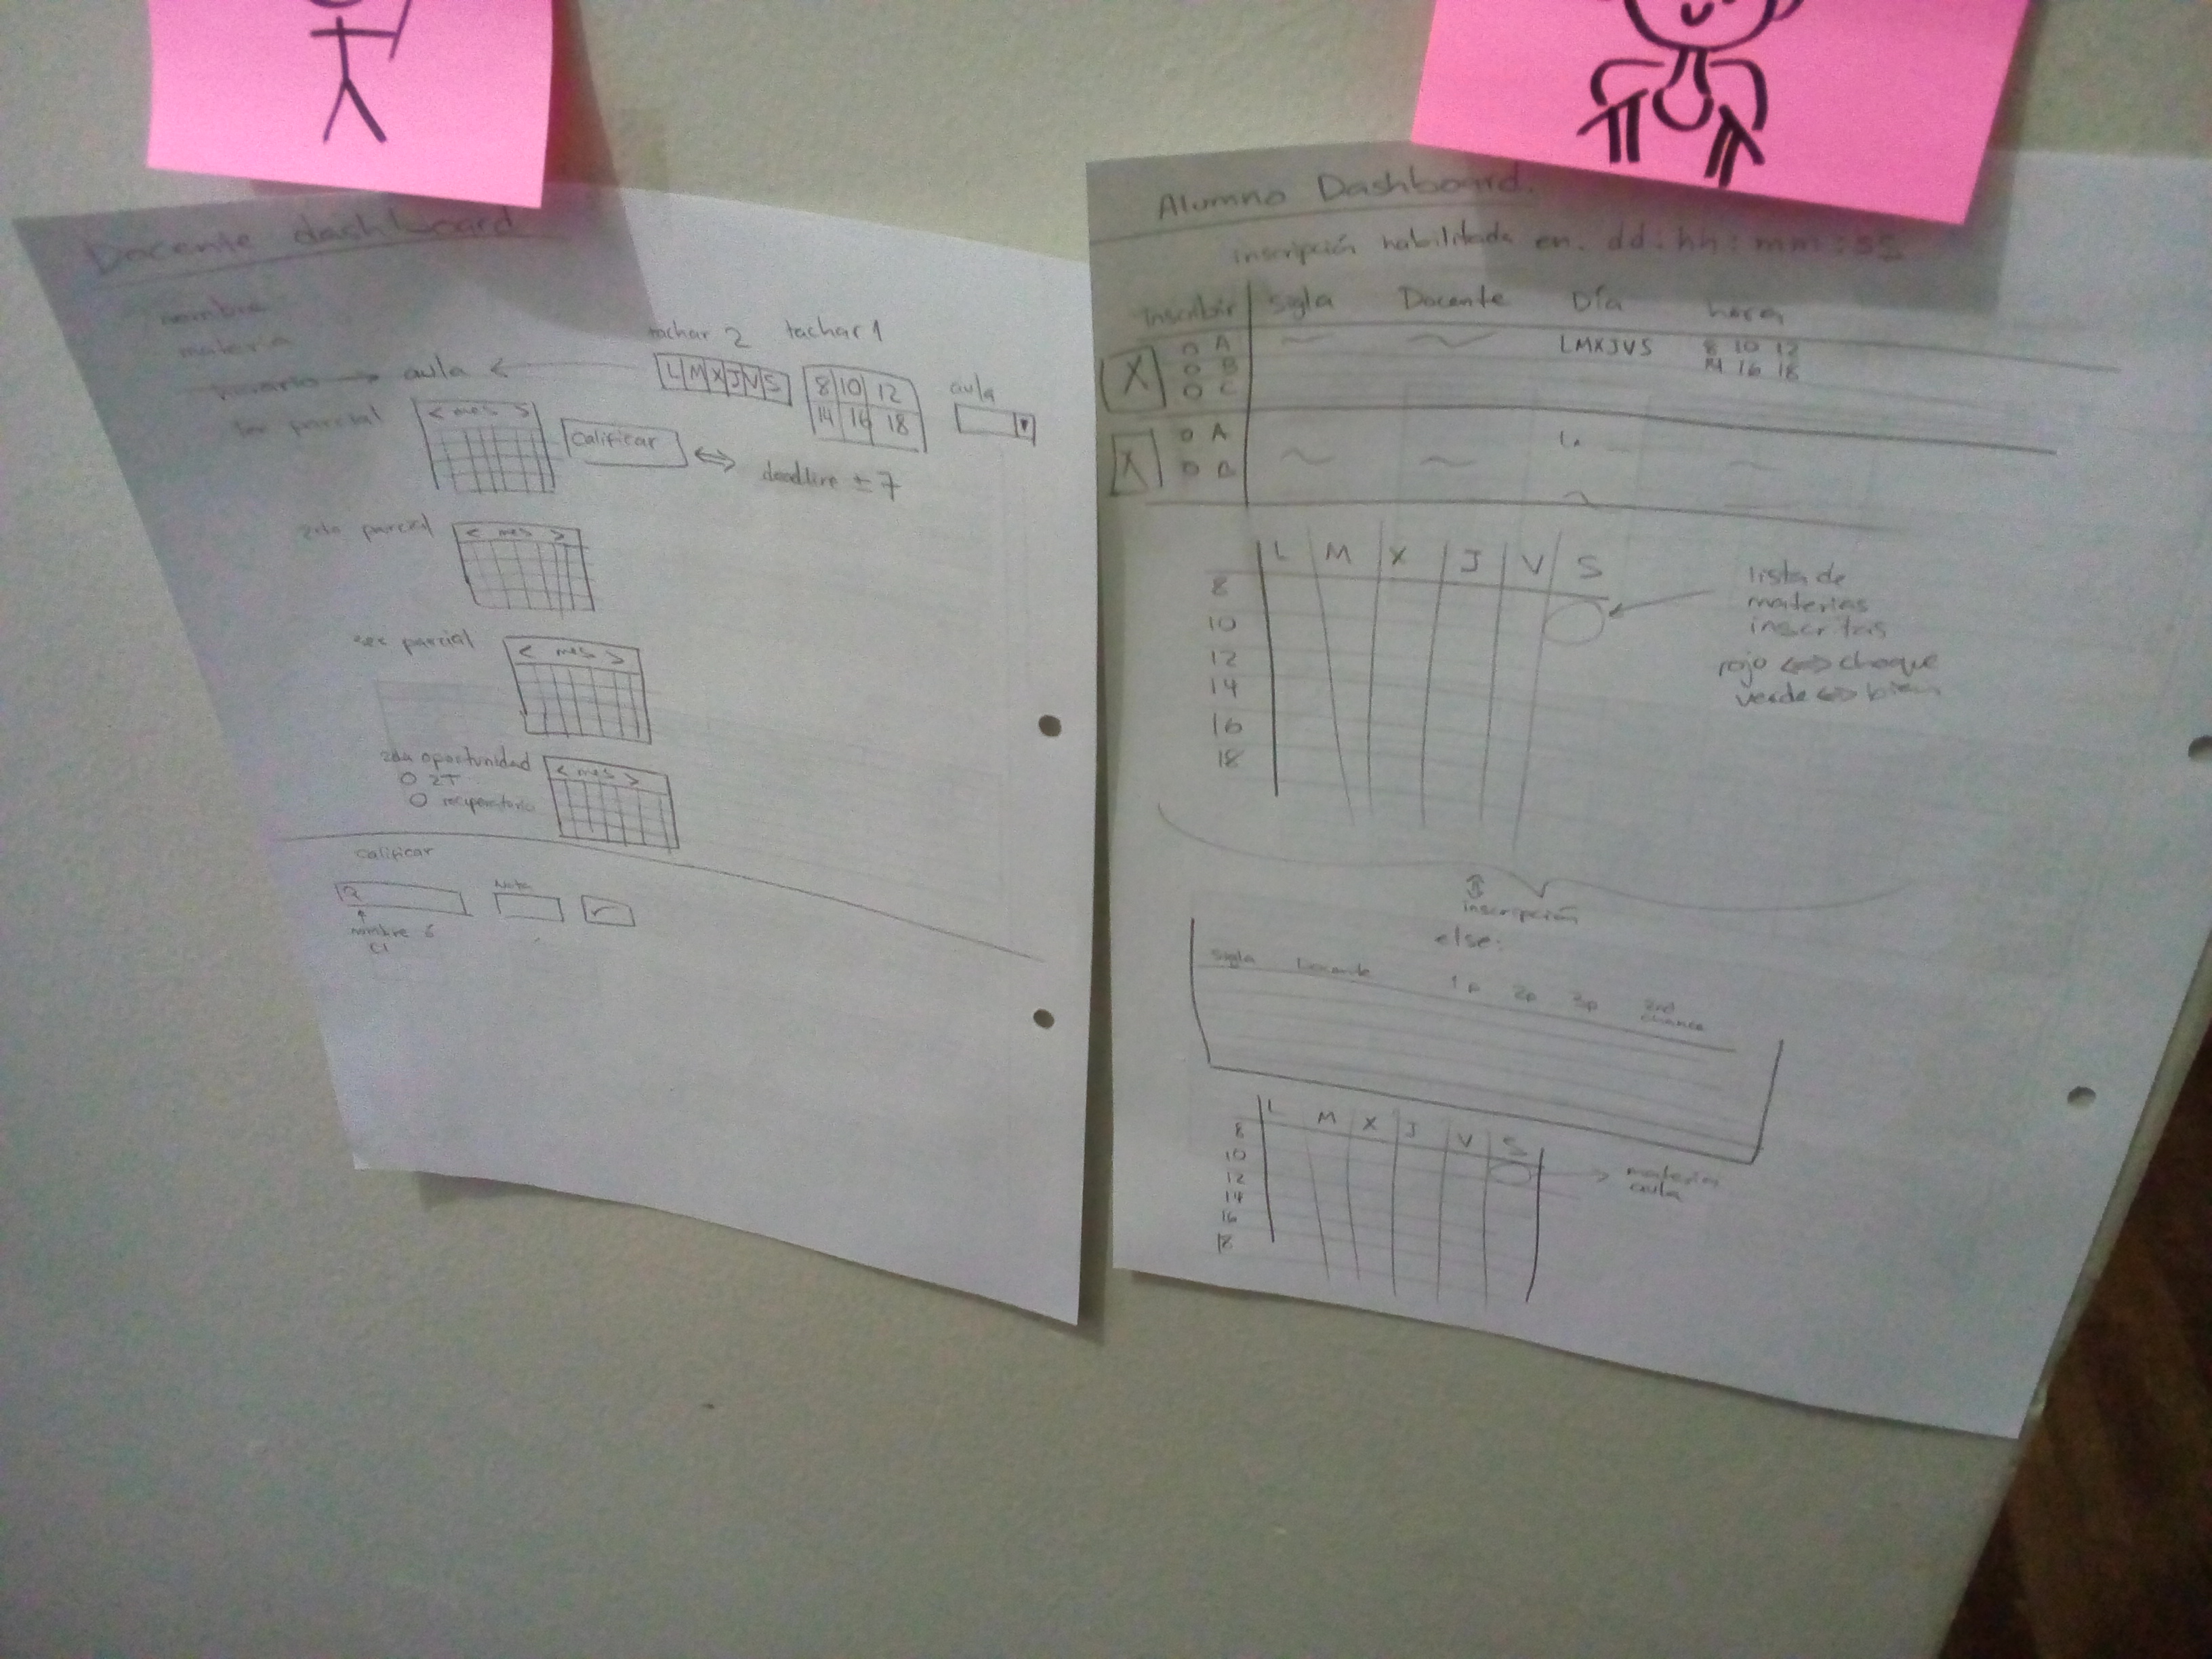 Docente dashboard
nombre
materia
horario → aula ←
tachar 2 tachar 1
L M X J V S
8 10 12
14 16 18
aula
1er parcial
< mes >
Calificar
deadline ± 7
2do parcial
< mes >
3er parcial
< mes >
2da oportunidad
2T
recuperatorio
< mes >
calificar
Nota
nombre ó
CI
Alumno Dashboard.
inscripción habilitada en. dd: hh: mm: ss
Inscribir sigla Docente Día hora
X
A
B
C
LMXJVS
8 10 12
14 16 18
X
A
B
L M X J V S
8
10
12
14
16
18
lista de
materias
inscritas
rojo <=> choque
verde <=> bien
inscripción
else:
sigla Docente 1p 2p 3p 2nd
chance
L M X J V S
8
10
12
14
16
18
materia
aula